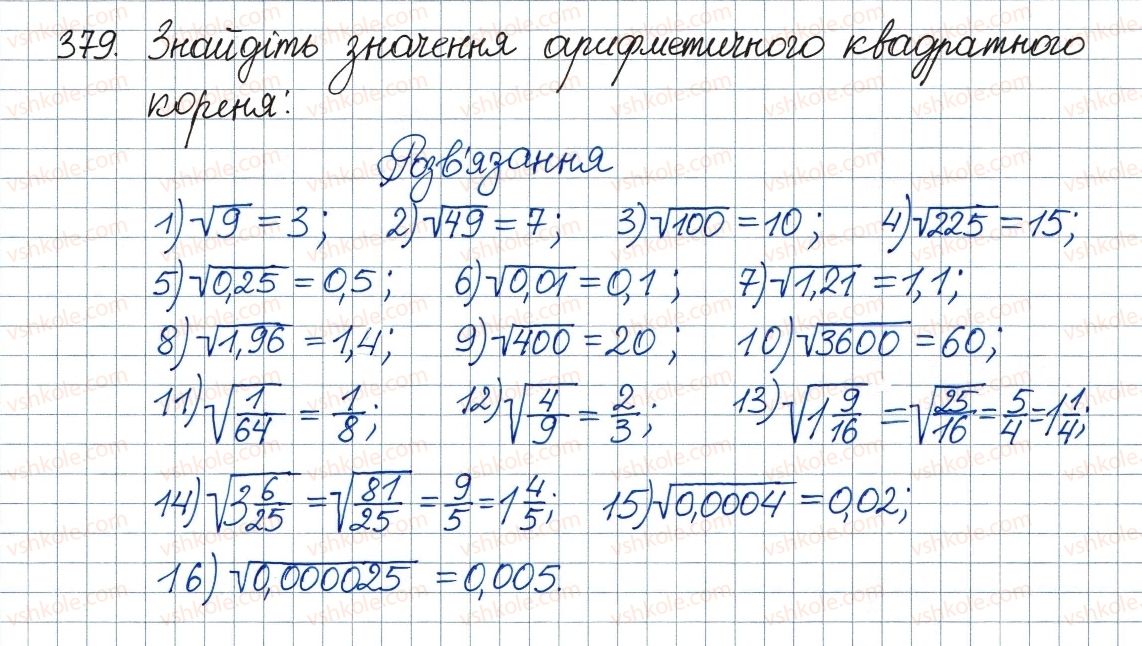 379. Знайдіть значення арифметичного квадратного
кореня:
Розв'язання
1) √9 = 3; 2) √49 = 7; 3) √100 = 10; 4) √225 = 15;
5) √0,25 = 0,5; 6) √0,01 = 0,1; 7) √1,21 = 1,1;
8) √1,96 = 1,4; 9) √400 = 20; 10) √3600 = 60;
11) √(1/64) = 1/8; 12) √(4/9) = 2/3; 13) √(1 9/16) = √(25/16) = 5/4 = 1 1/4;
14) √(3 6/25) = √(81/25) = 9/5 = 1 4/5; 15) √0,0004 = 0,02;
16) √0,000025 = 0,005.